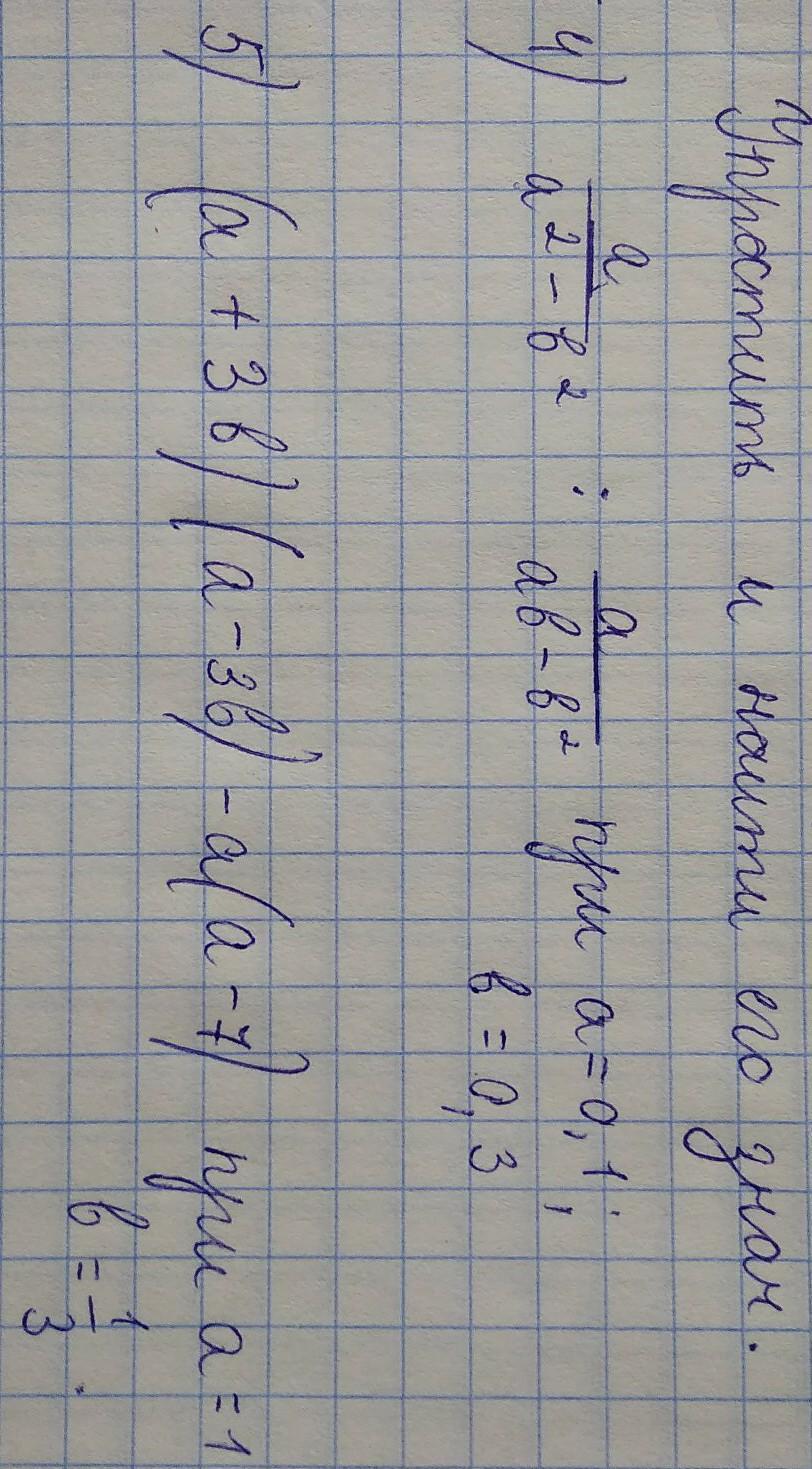 Упростить и найти его знач.
4) a/(a² - b²) : a/(ab - b²) при a = 0,1;
b = 0,3
5) (a + 3b)(a - 3b) - a(a - 7) при a = 1
b = 1/3.